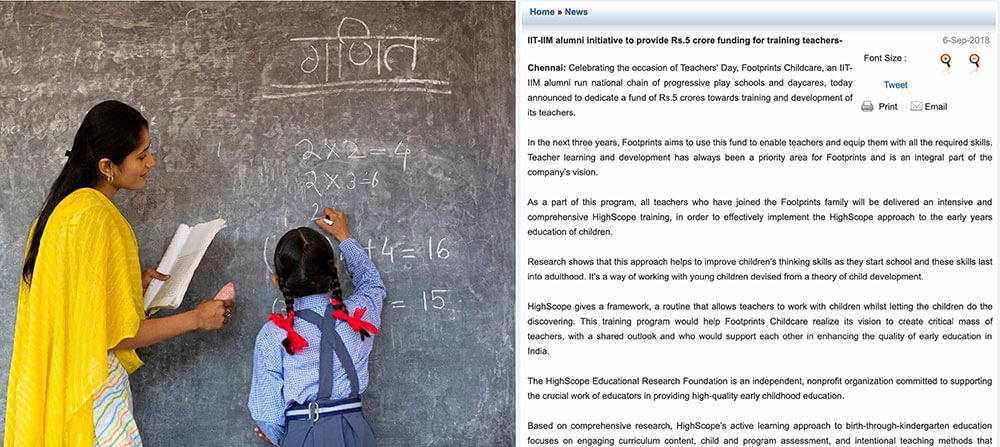 गणित
2 × 2 = 4
2 × 3 = 6
2
+ 4 = 16
= 15
Home » News
IIT-IIM alumni initiative to provide Rs.5 crore funding for training teachers-
6-Sep-2018
Font Size :
Tweet
Print Email
Chennai: Celebrating the occasion of Teachers' Day, Footprints Childcare, an IIT-
IIM alumni run national chain of progressive play schools and daycares, today
announced to dedicate a fund of Rs.5 crores towards training and development of
its teachers.
In the next three years, Footprints aims to use this fund to enable teachers and equip them with all the required skills.
Teacher learning and development has always been a priority area for Footprints and is an integral part of the
company's vision.
As a part of this program, all teachers who have joined the Footprints family will be delivered an intensive and
comprehensive HighScope training, in order to effectively implement the HighScope approach to the early years
education of children.
Research shows that this approach helps to improve children's thinking skills as they start school and these skills last
into adulthood. It's a way of working with young children devised from a theory of child development.
HighScope gives a framework, a routine that allows teachers to work with children whilst letting the children do the
discovering. This training program would help Footprints Childcare realize its vision to create critical mass of
teachers, with a shared outlook and who would support each other in enhancing the quality of early education in
India.
The HighScope Educational Research Foundation is an independent, nonprofit organization committed to supporting
the crucial work of educators in providing high-quality early childhood education.
Based on comprehensive research, HighScope's active learning approach to birth-through-kindergarten education
focuses on engaging curriculum content, child and program assessment, and intentional teaching methods that